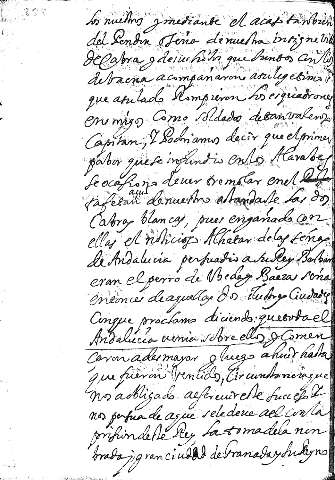 los nuestros y mediante el acasto tambien
del Pendon Señe de nuestra insigne Villa
de Cabra y de su hijos, que juntos con los
de baena acompañaron a su legitimo
que a su lado Rompieron los esquadrones
enemigos Como soldados de tan valeroso
Capitan, Y Podriamos decir que el primer
pabor que se infundio en los Alarabes
se ocasiono de ver tremolar en el
tafetan de nuestro estandarte las dos
aqui
Cabras blancas, pues engañado con
ellas el noticioso Alhatar de las señas
de Andalucia persuadio a su Rey Barban
eran el perro de Vbeda y Baeza seña
entonces de aquellas dos Ilustres Ciudades
Conque proclamo diciendo que toda el
Andalucia venia sobre ellos y Comen
caron a desmayar y luego a huir hasta
que fueron vencidos, Circunstancia que
nos a obligado a escreuir este sucesso Y
nos persuade a que se le deve a el con la
prision de este Rey la toma de la nom
brada y gran ciudad de Granada y su Reyno